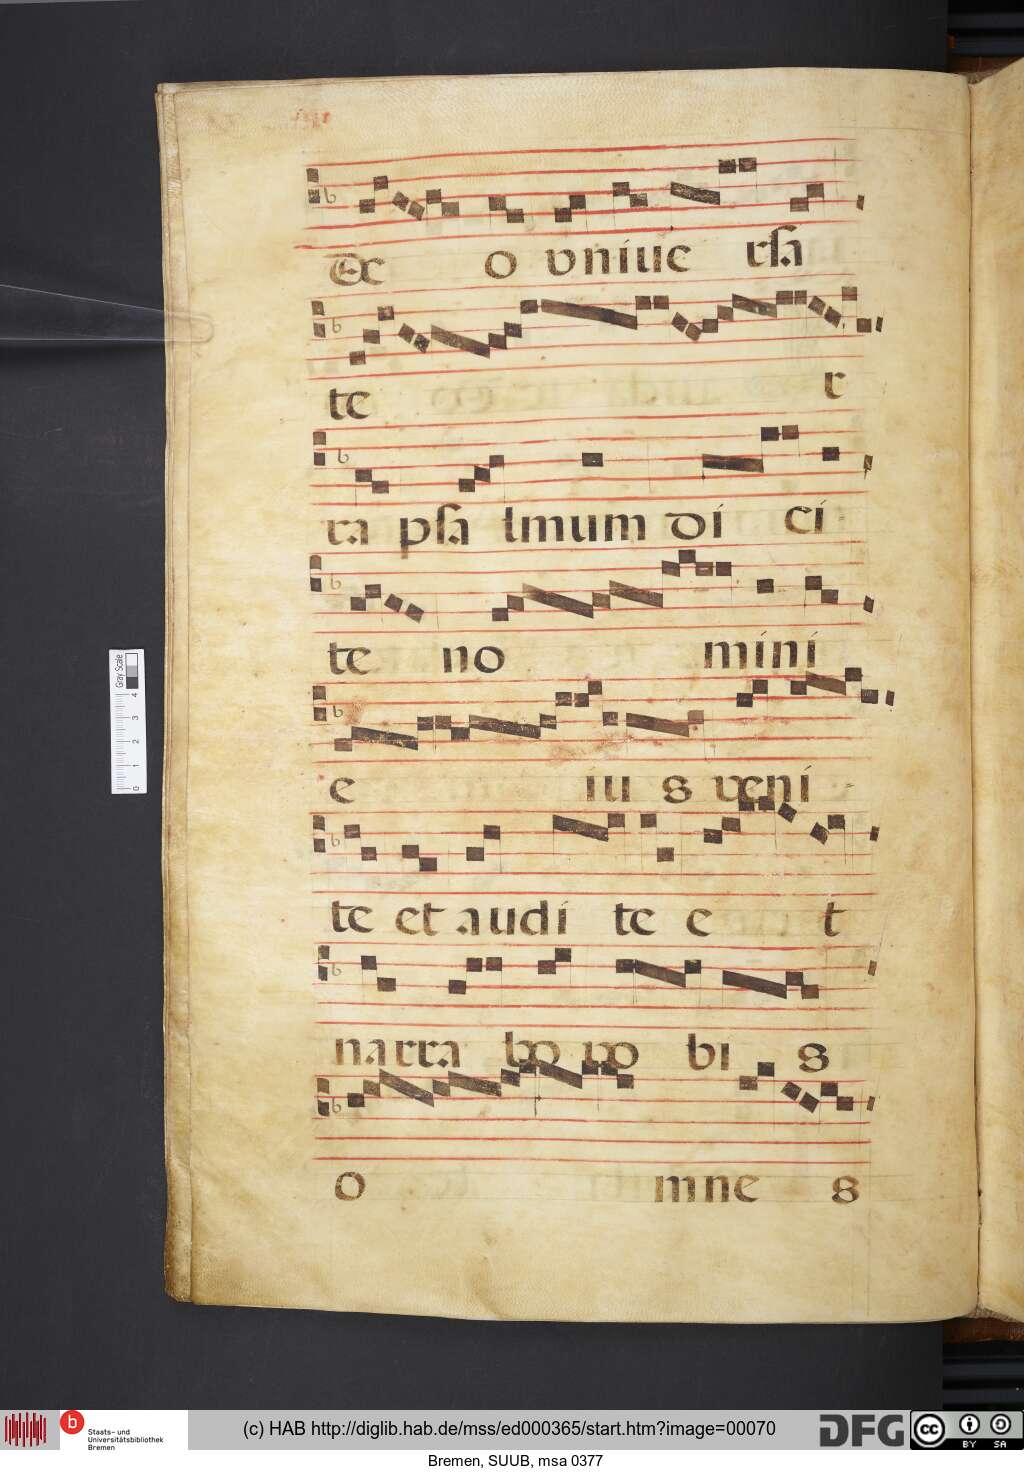 Dc o vniue rsa
te r
ra psa lmum di ci
te no mini
e iu s veni
te et audi te e t
narra bo vo bi s
o mne s
Gray Scale
0 1 2 3 4
Staats- und
Universitätsbibliothek
Bremen
(c) HAB http://diglib.hab.de/mss/ed000365/start.htm?image=00070
DFG
cc BY SA
Bremen, SUUB, msa 0377